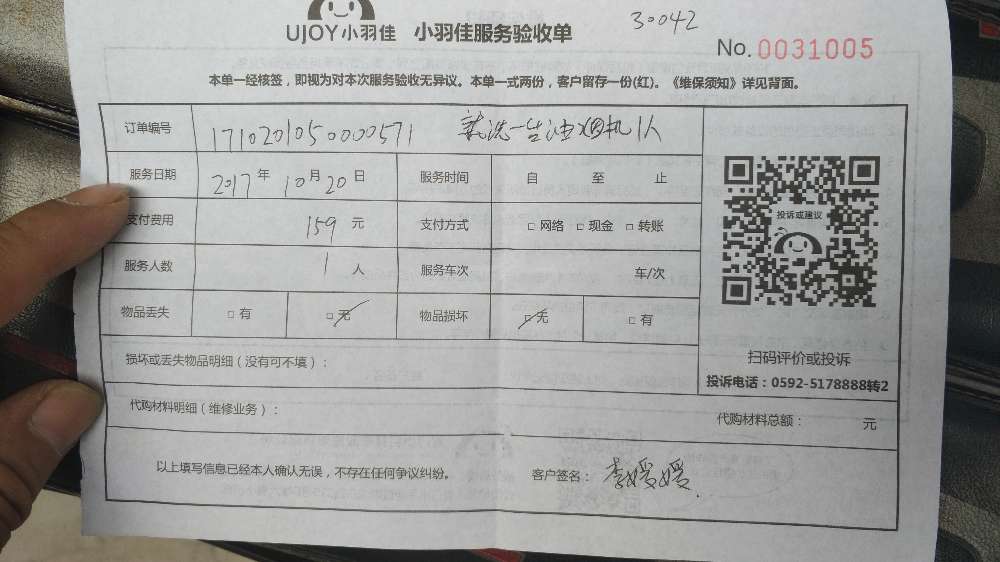 30042
UJOY小羽佳 小羽佳服务验收单
No. 0031005
本单一经核签，即视为对本次服务验收无异议。本单一式两份，客户留存一份(红)。《维保须知》详见背面。
订单编号 1710201050000571 就洗一台油烟机1人
服务日期 2017年10月20日 服务时间 自 至 止
支付费用 159元 支付方式 □网络 □现金 □转账
服务人数 1人 服务车次 车/次
物品丢失 □有 □无 物品损坏 □无 □有
投诉或建议
扫码评价或投诉
投诉电话：0592-5178888转2
损坏或丢失物品明细（没有可不填）：
代购材料明细（维修业务）： 代购材料总额： 元
以上填写信息已经本人确认无误，不存在任何争议纠纷。 客户签名：李媛媛